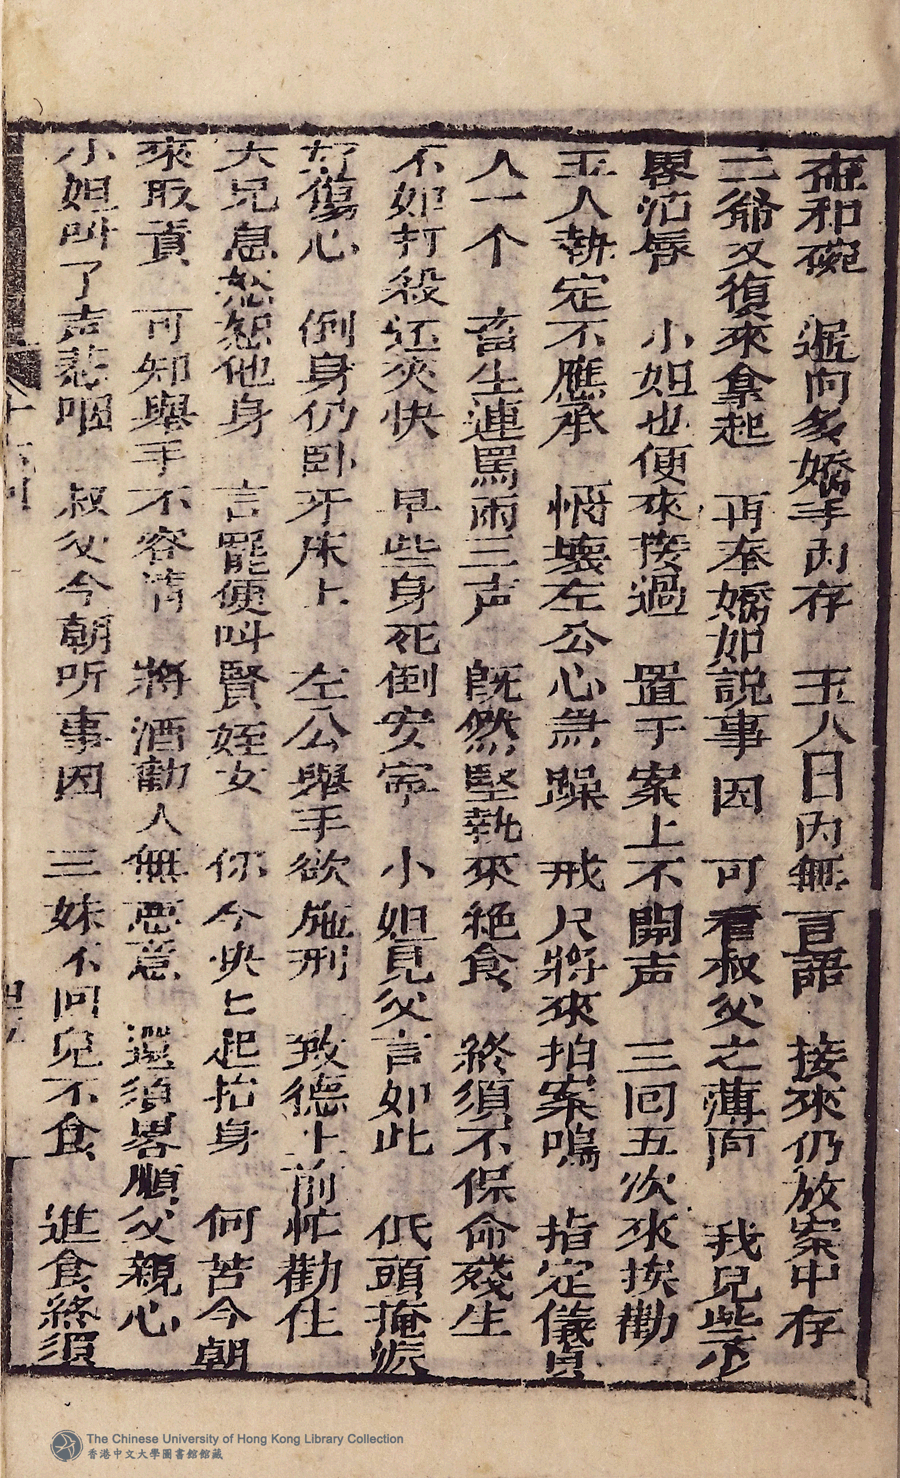 盃和碗　遞向多嬌手內存　玉人日內無言語　接來仍放案中存
二爺又復來拿起　再奉嬌如說事因　可看叔父之薄面　我兒些小
畧沾唇　小姐也便來接過　置于案上不開声　三回五次來挨勸
玉人執定不應承　惱壞左公心急躁　戒尺將來拍案鳴　指定儀貞
人一个　畜生連罵兩三声　既然堅執來絕食　終須不保命殘生
不如打殺还爽快　早些身死倒安寧　小姐見父言如此　低頭掩淚
好傷心　倒身仍卧牙床上　左公舉手欲施刑　致德上前忙勸住
大兄息怒恕他身　言罷便叫賢姪女　你今快匕起抬身　何苦今朝
來取責　可知舉手不容情　將酒勸人無惡意　還須畧順父親心
小姐叫了声悲咽　叔父今朝听事因　三妹不回兒不食　進食終須
The Chinese University of Hong Kong Library Collection
香港中文大學圖書館館藏